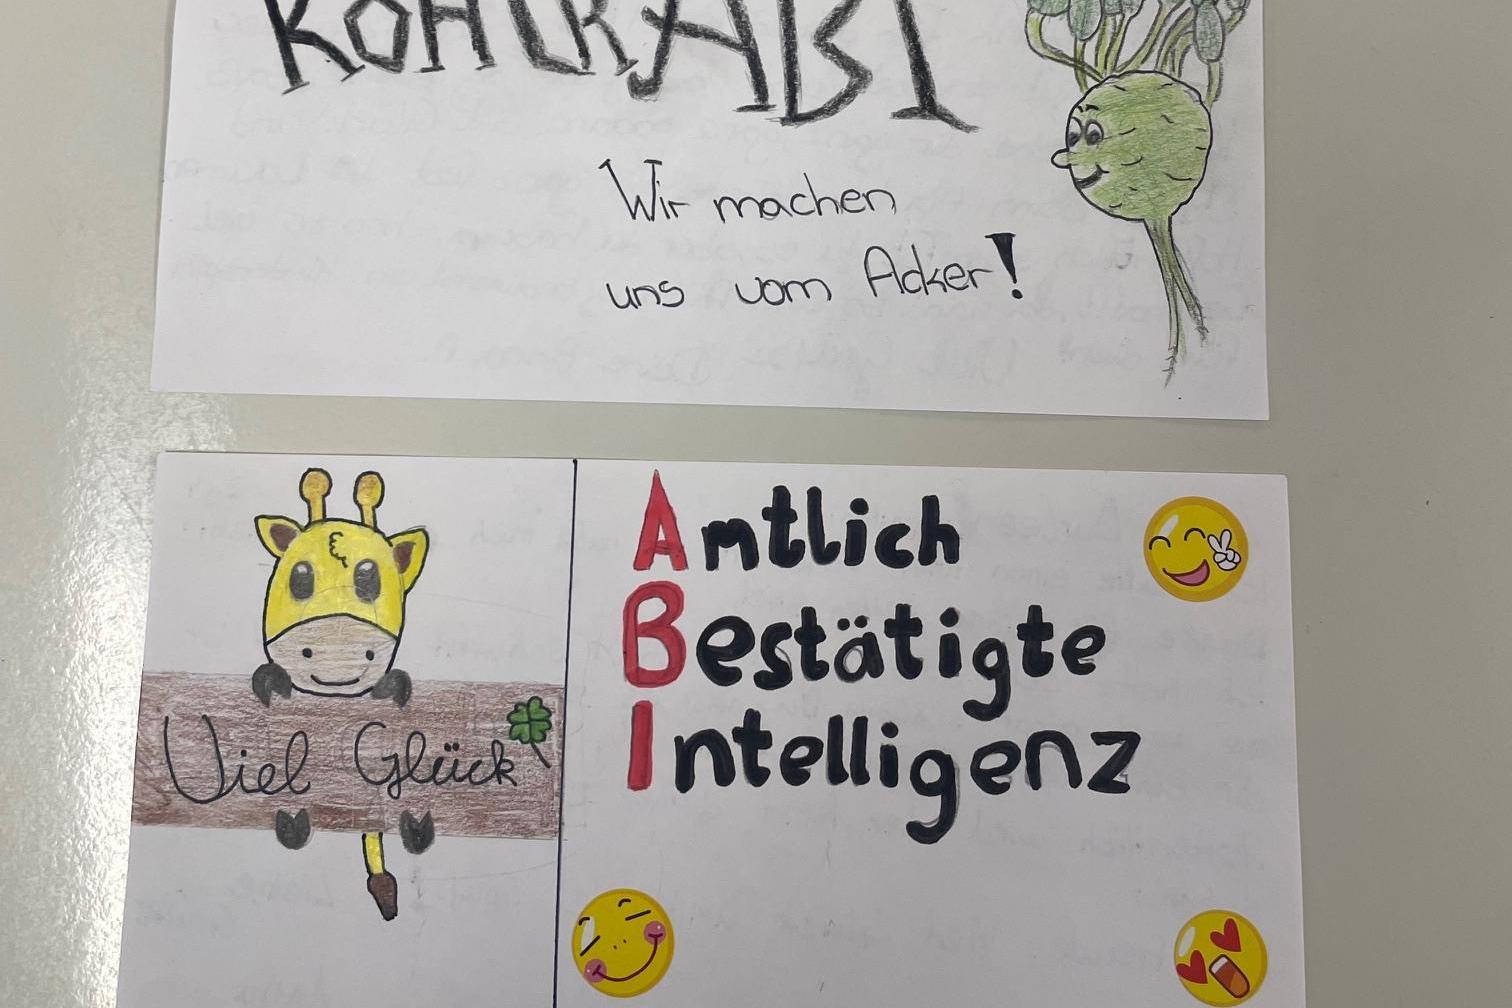 KOHLRABI
Wir machen
uns vom Acker!
Viel Glück
Amtlich
Bestätigte
Intelligenz